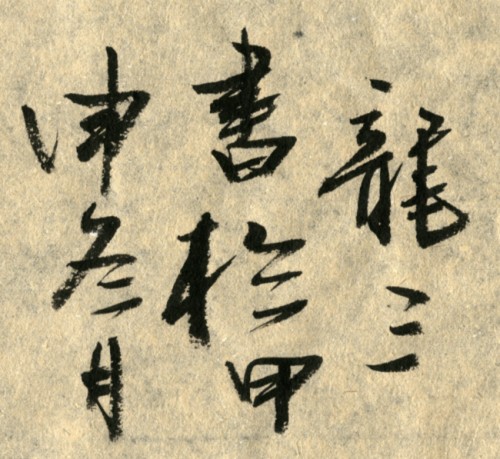 龍二
書於甲
申冬月